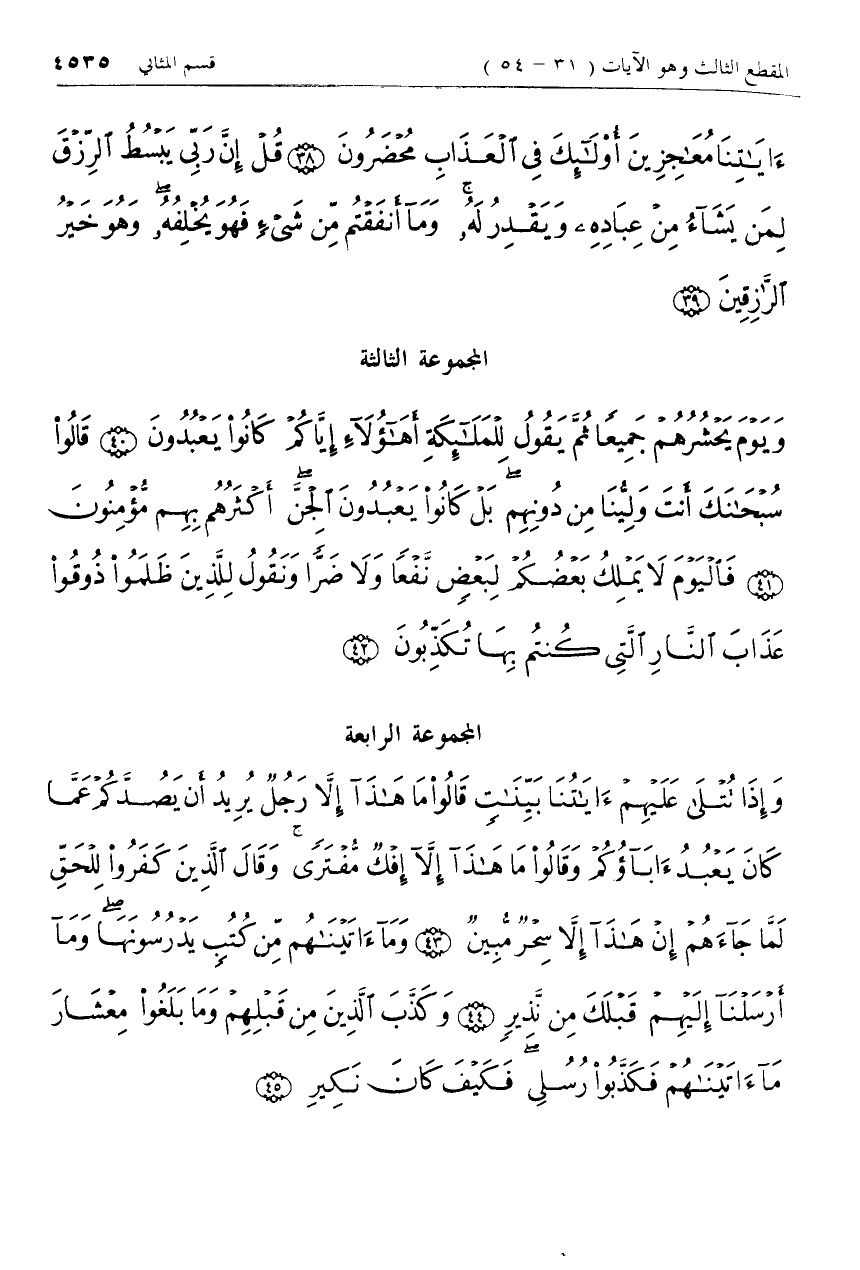 المقطع الثالث وهو الآيات ( ٣١ - ٥٤ ) قسم المثاني ٤٥٣٥
ءَايَـٰتِنَا مُعَـٰجِزِينَ أُوْلَـٰٓئِكَ فِى ٱلْعَذَابِ مُحْضَرُونَ ﴿٣٨﴾ قُلْ إِنَّ رَبِّى يَبْسُطُ ٱلرِّزْقَ
لِمَن يَشَآءُ مِنْ عِبَادِهِۦ وَيَقْدِرُ لَهُۥ ۚ وَمَآ أَنفَقْتُم مِّن شَىْءٍ فَهُوَ يُخْلِفُهُۥ ۖ وَهُوَ خَيْرُ
ٱلرَّٰزِقِينَ ﴿٣٩﴾
المجموعة الثالثة
وَيَوْمَ يَحْشُرُهُمْ جَمِيعًا ثُمَّ يَقُولُ لِلْمَلَـٰٓئِكَةِ أَهَـٰٓؤُلَآءِ إِيَّاكُمْ كَانُوا۟ يَعْبُدُونَ ﴿٤٠﴾ قَالُوا۟
سُبْحَـٰنَكَ أَنتَ وَلِيُّنَا مِن دُونِهِم ۖ بَلْ كَانُوا۟ يَعْبُدُونَ ٱلْجِنَّ ۖ أَكْثَرُهُم بِهِم مُّؤْمِنُونَ
﴿٤١﴾ فَٱلْيَوْمَ لَا يَمْلِكُ بَعْضُكُمْ لِبَعْضٍ نَّفْعًا وَلَا ضَرًّا وَنَقُولُ لِلَّذِينَ ظَلَمُوا۟ ذُوقُوا۟
عَذَابَ ٱلنَّارِ ٱلَّتِى كُنتُم بِهَا تُكَذِّبُونَ ﴿٤٢﴾
المجموعة الرابعة
وَإِذَا تُتْلَىٰ عَلَيْهِمْ ءَايَـٰتُنَا بَيِّنَـٰتٍ قَالُوا۟ مَا هَـٰذَآ إِلَّا رَجُلٌ يُرِيدُ أَن يَصُدَّكُمْ عَمَّا
كَانَ يَعْبُدُ ءَابَآؤُكُمْ وَقَالُوا۟ مَا هَـٰذَآ إِلَّآ إِفْكٌ مُّفْتَرًى ۚ وَقَالَ ٱلَّذِينَ كَفَرُوا۟ لِلْحَقِّ
لَمَّا جَآءَهُمْ إِنْ هَـٰذَآ إِلَّا سِحْرٌ مُّبِينٌ ﴿٤٣﴾ وَمَآ ءَاتَيْنَـٰهُم مِّن كُتُبٍ يَدْرُسُونَهَا ۖ وَمَآ
أَرْسَلْنَآ إِلَيْهِمْ قَبْلَكَ مِن نَّذِيرٍ ﴿٤٤﴾ وَكَذَّبَ ٱلَّذِينَ مِن قَبْلِهِمْ وَمَا بَلَغُوا۟ مِعْشَارَ
مَآ ءَاتَيْنَـٰهُمْ فَكَذَّبُوا۟ رُسُلِى ۖ فَكَيْفَ كَانَ نَكِيرِ ﴿٤٥﴾